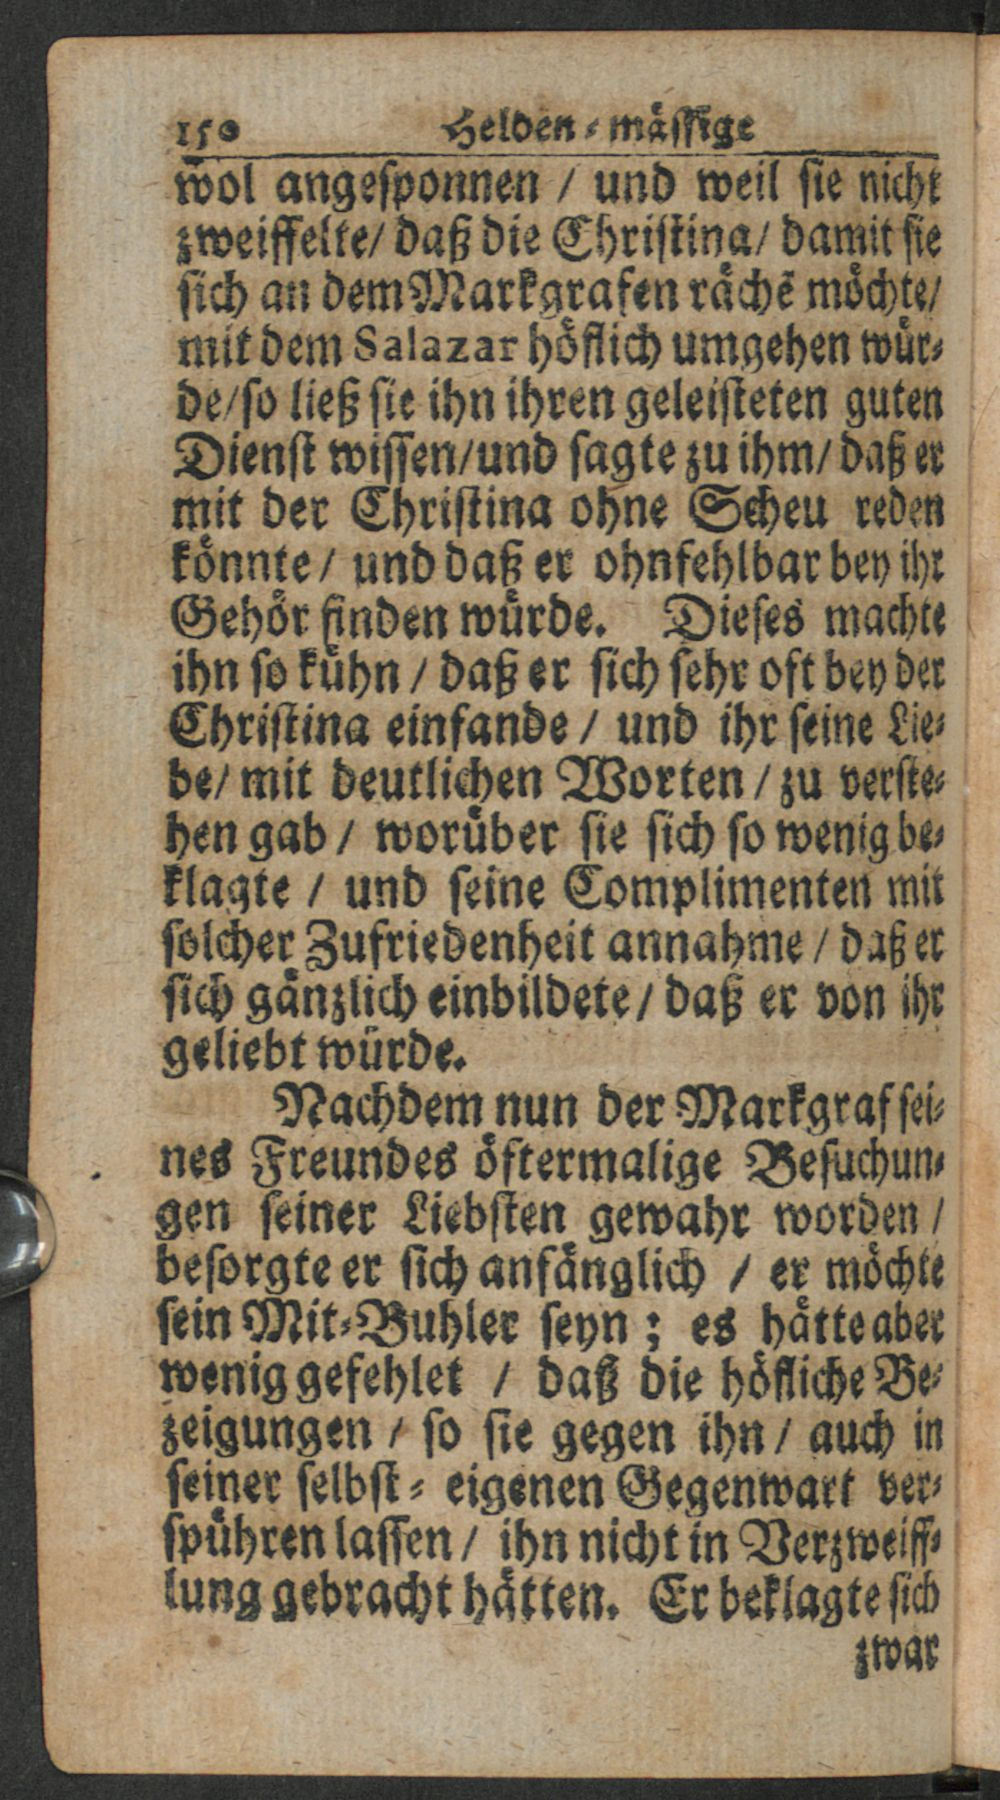 150 Helden-mässige
wol angesponnen / und weil sie nicht
zweiffelte/ daß die Christina/ damit sie
sich an dem Markgrafen rächẽ möchte/
mit dem Salazar höflich umgehen wür-
de/so ließ sie ihn ihren geleisteten guten
Dienst wissen/und sagte zu ihm/ daß er
mit der Christina ohne Scheu reden
könnte/ und daß er ohnfehlbar bey ihr
Gehör finden würde. Dieses machte
ihn so kühn / daß er sich sehr oft bey der
Christina einfande / und ihr seine Lie-
be/ mit deutlichen Worten / zu verste-
hen gab / worüber sie sich so wenig be-
klagte / und seine Complimenten mit
solcher Zufriedenheit annahme / daß er
sich gänzlich einbildete / daß er von ihr
geliebt würde.
Nachdem nun der Markgraf sei-
nes Freundes öftermalige Besuchun-
gen seiner Liebsten gewahr worden /
besorgte er sich anfänglich / er möchte
sein Mit-Buhler seyn; es hätte aber
wenig gefehlet / daß die höfliche Be-
zeigungen / so sie gegen ihn / auch in
seiner selbst-eigenen Gegenwart ver-
spühren lassen / ihn nicht in Verzweiff-
lung gebracht hätten. Er beklagte sich
zwar